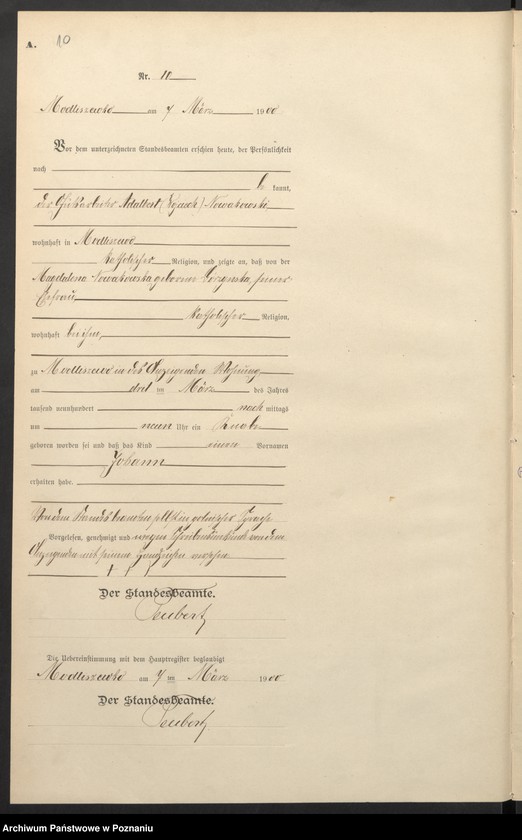 A. 10
Nr. 10
Modliszewko am 7 März 1900
Vor dem unterzeichneten Standesbeamten erschien heute, der Persönlichkeit
nach
be kannt,
der Adalbert Nowakowski
wohnhaft in Modliszewo
katholischer Religion, und zeigte an, daß von der
Magdalena Nowakowska geborene seiner
Ehefrau
katholischer Religion,
wohnhaft bei ihm,
zu Modliszewo in des Anzeigenden Wohnung
am drei ten März des Jahres
tausend neunhundert nach mittags
um neun Uhr ein Knabe
geboren worden sei und daß das Kind einen Vornamen
Johann
erhalten habe.
Von dem Standesbeamten selbst in polnischer Sprache
Vorgelesen, genehmigt und wegen Schreibunkunde von dem
Anzeigenden mit seinem Handzeichen versehen
+ + +
Der Standesbeamte.
Seubert
Die Uebereinstimmung mit dem Hauptregister beglaubigt
Modliszewko am 7 ten März 1900
Der Standesbeamte.
Seubert
Archiwum Państwowe w Poznaniu